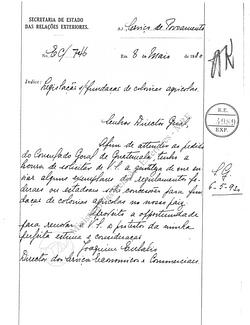 SECRETARIA DE ESTADO
DAS RELAÇÕES EXTERIORES.
Ao Serviço de Povoamento
No. EC/746
Em 8 de Maio de 19
Indice: Regulação s/fundaçao de colonias agricolas.
AK
Senhor Director Geral,
R.E.
EXP.
Afim de attender ao pedido
do Consulado Geral de Guatemala, tenho a
honra de solicitar de V. S. a gentileza de me en-
viar alguns exemplares do regulamentos fe-
deraes ou estadoaes sobre concessões para fun-
daçao de colonias agricolas no nosso paiz.
Aproveito a opportunidade
para renovar a V. S. os protestos da minha
perfeita estima e consideração.
Joaquim Eulalio
Director dos Serviços Economicos e Commerciaes.